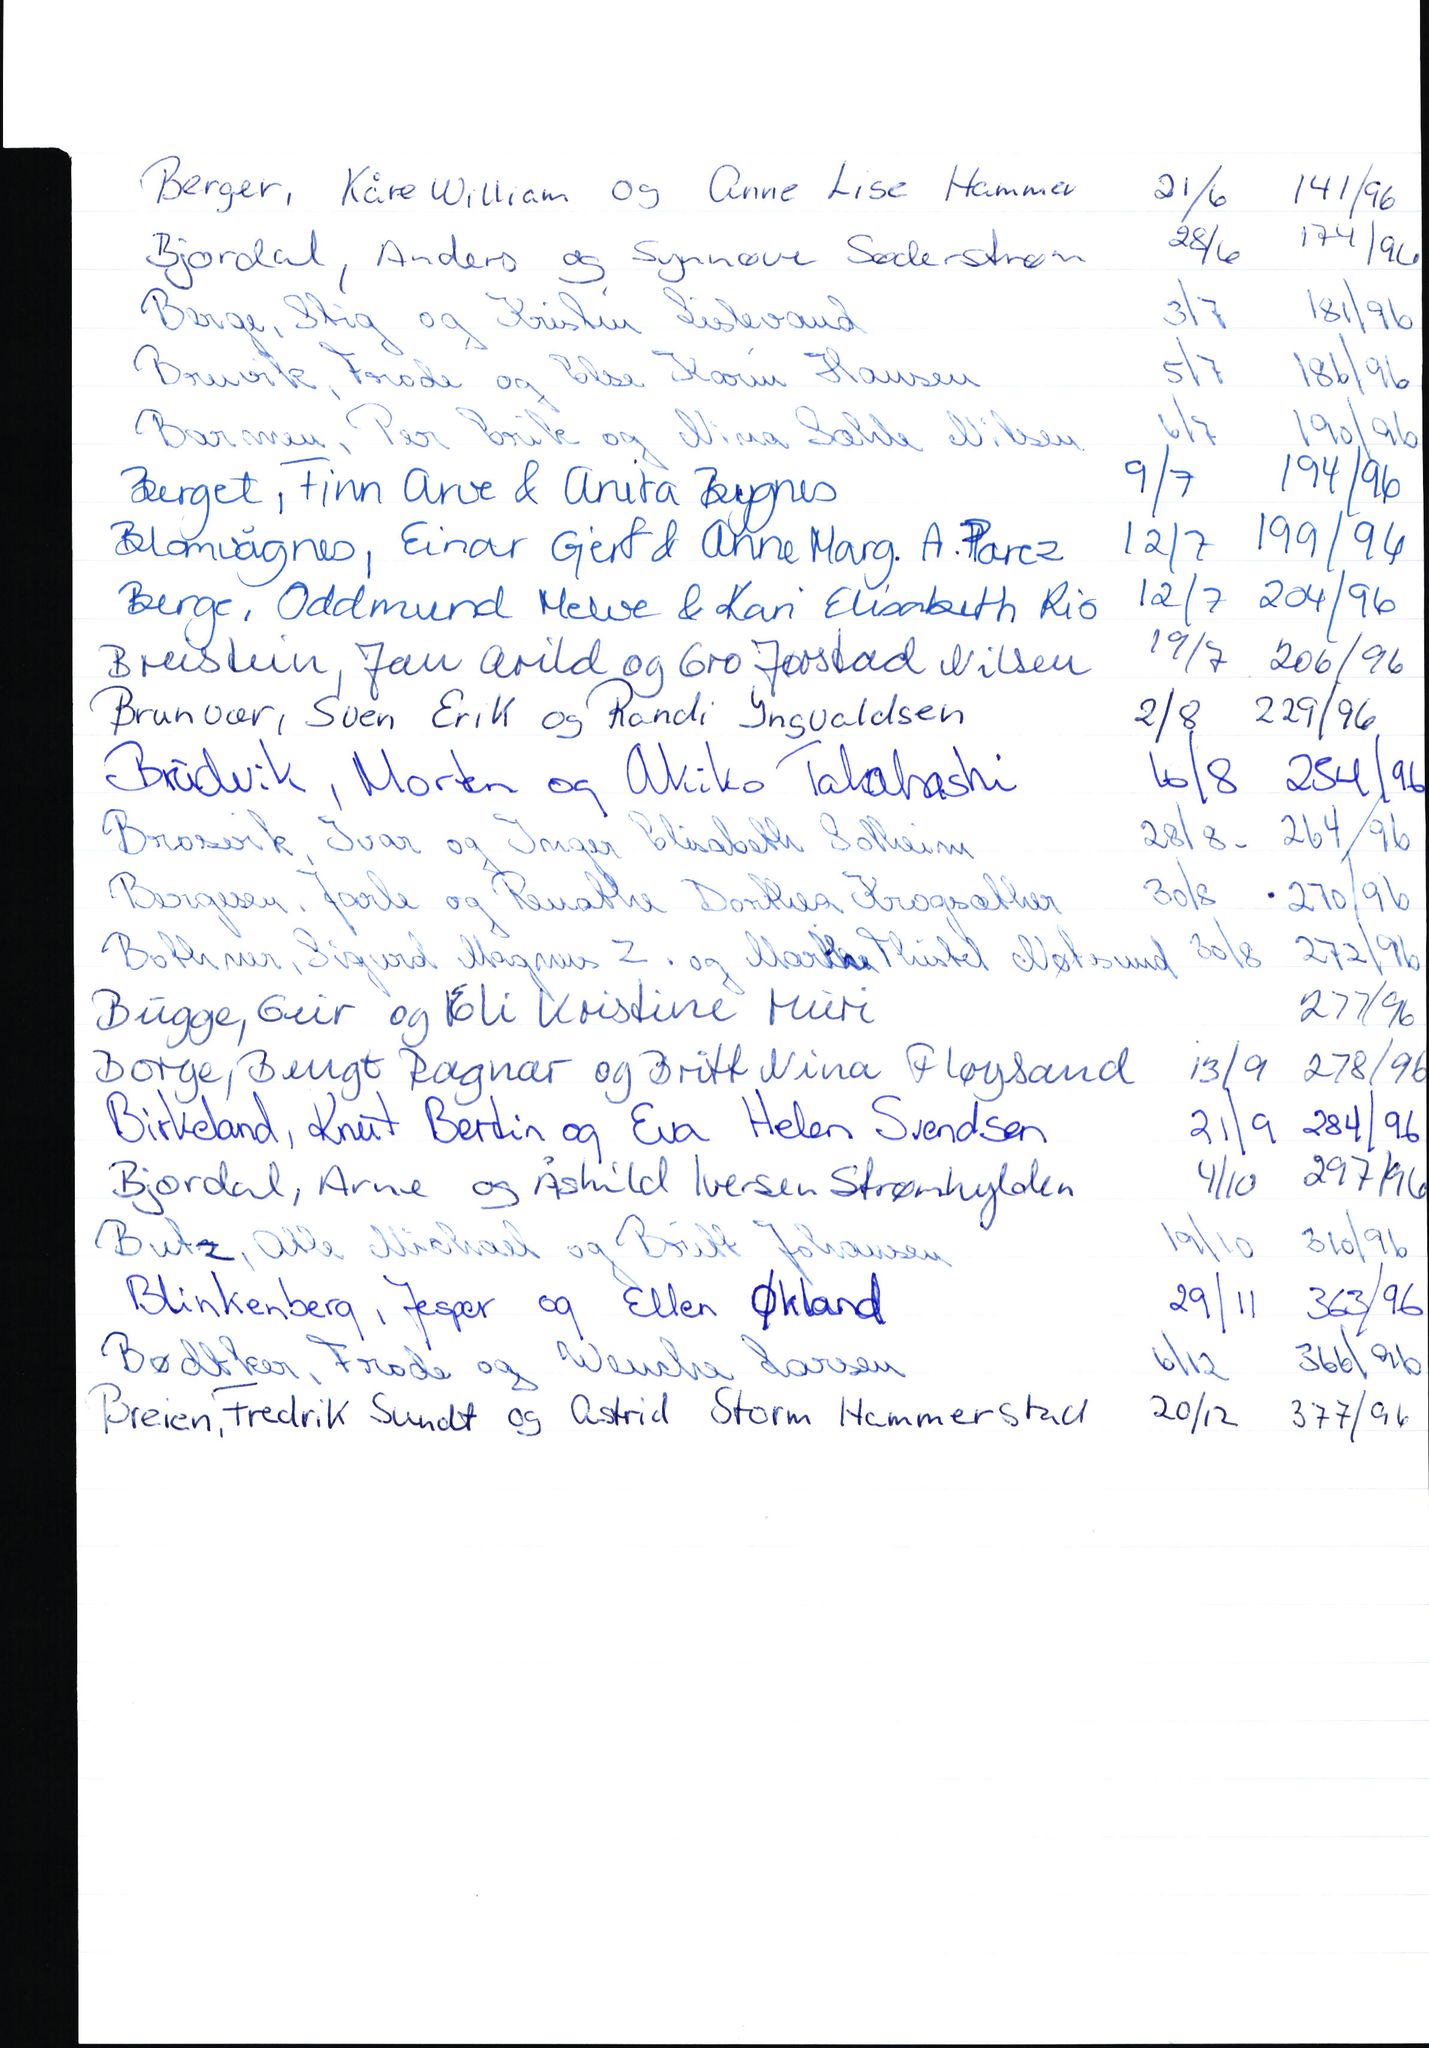 Berger, Kåre William og Anne Lise Hammer 21/6 141/96
Bjordal, Anders og Synnøve Søderstrøm 28/6 174/96
Børge, Stig og Kristin Sislevand 3/7 181/96
Bruvik, Frode og Else Karin Hansen 5/7 186/96
Barmen, Per Erik og Nina Nilsen 6/7 190/96
Berget, Finn Arve & Anita Bygnes 9/7 194/96
Blomvågnes, Einar Gjert & Anne Marg. A. Parcz 12/7 199/96
Berge, Oddmund Melve & Kari Elisabeth Rio 12/7 204/96
Breistein, Jan Arild og Gro Jørstad Nilsen 19/7 206/96
Brunvær, Sven Erik og Randi Yngvaldsen 2/8 229/96
Brudvik, Morten og Akiko Takahashi 16/8 254/96
Brosvik, Ivar og Inger Elisabeth Solheim 28/8 - 264/96
Børgesen, Jarle og Renathe Dorthea Krogsæther 30/8 270/96
Bothner, Sigurd Magnus Z. og Marthe Thistel Møtesund 30/8 272/96
Bugge, Geir og Eli Kristine Muri 277/96
Borge, Bengt Ragnar og Britt Nina Fløysand 13/9 278/96
Birkeland, Knut Bertin og Eva Helen Svendsen 21/9 284/96
Bjordal, Arne og Åshild Iversen Strømhylden 4/10 297/96
Butz, Atle Michael og Britt Johansen 19/10 310/96
Blinkenberg, Jesper og Ellen Økland 29/11 363/96
Bødtker, Frode og Wenche Larsen 6/12 366/96
Breien, Fredrik Sundt og Astrid Storm Hammerstad 20/12 377/96